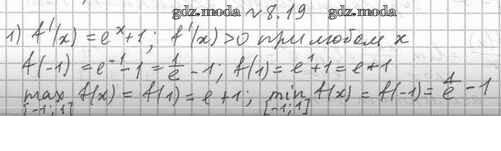 gdz.moda №8.19 gdz.moda
1) f'(x) = e^x + 1; f'(x) > 0 при любом x
f(-1) = e^{-1} - 1 = 1/e - 1; f(1) = e^1 + 1 = e + 1
max f(x) = f(1) = e + 1; min f(x) = f(-1) = 1/e - 1
[-1;1] [-1;1]